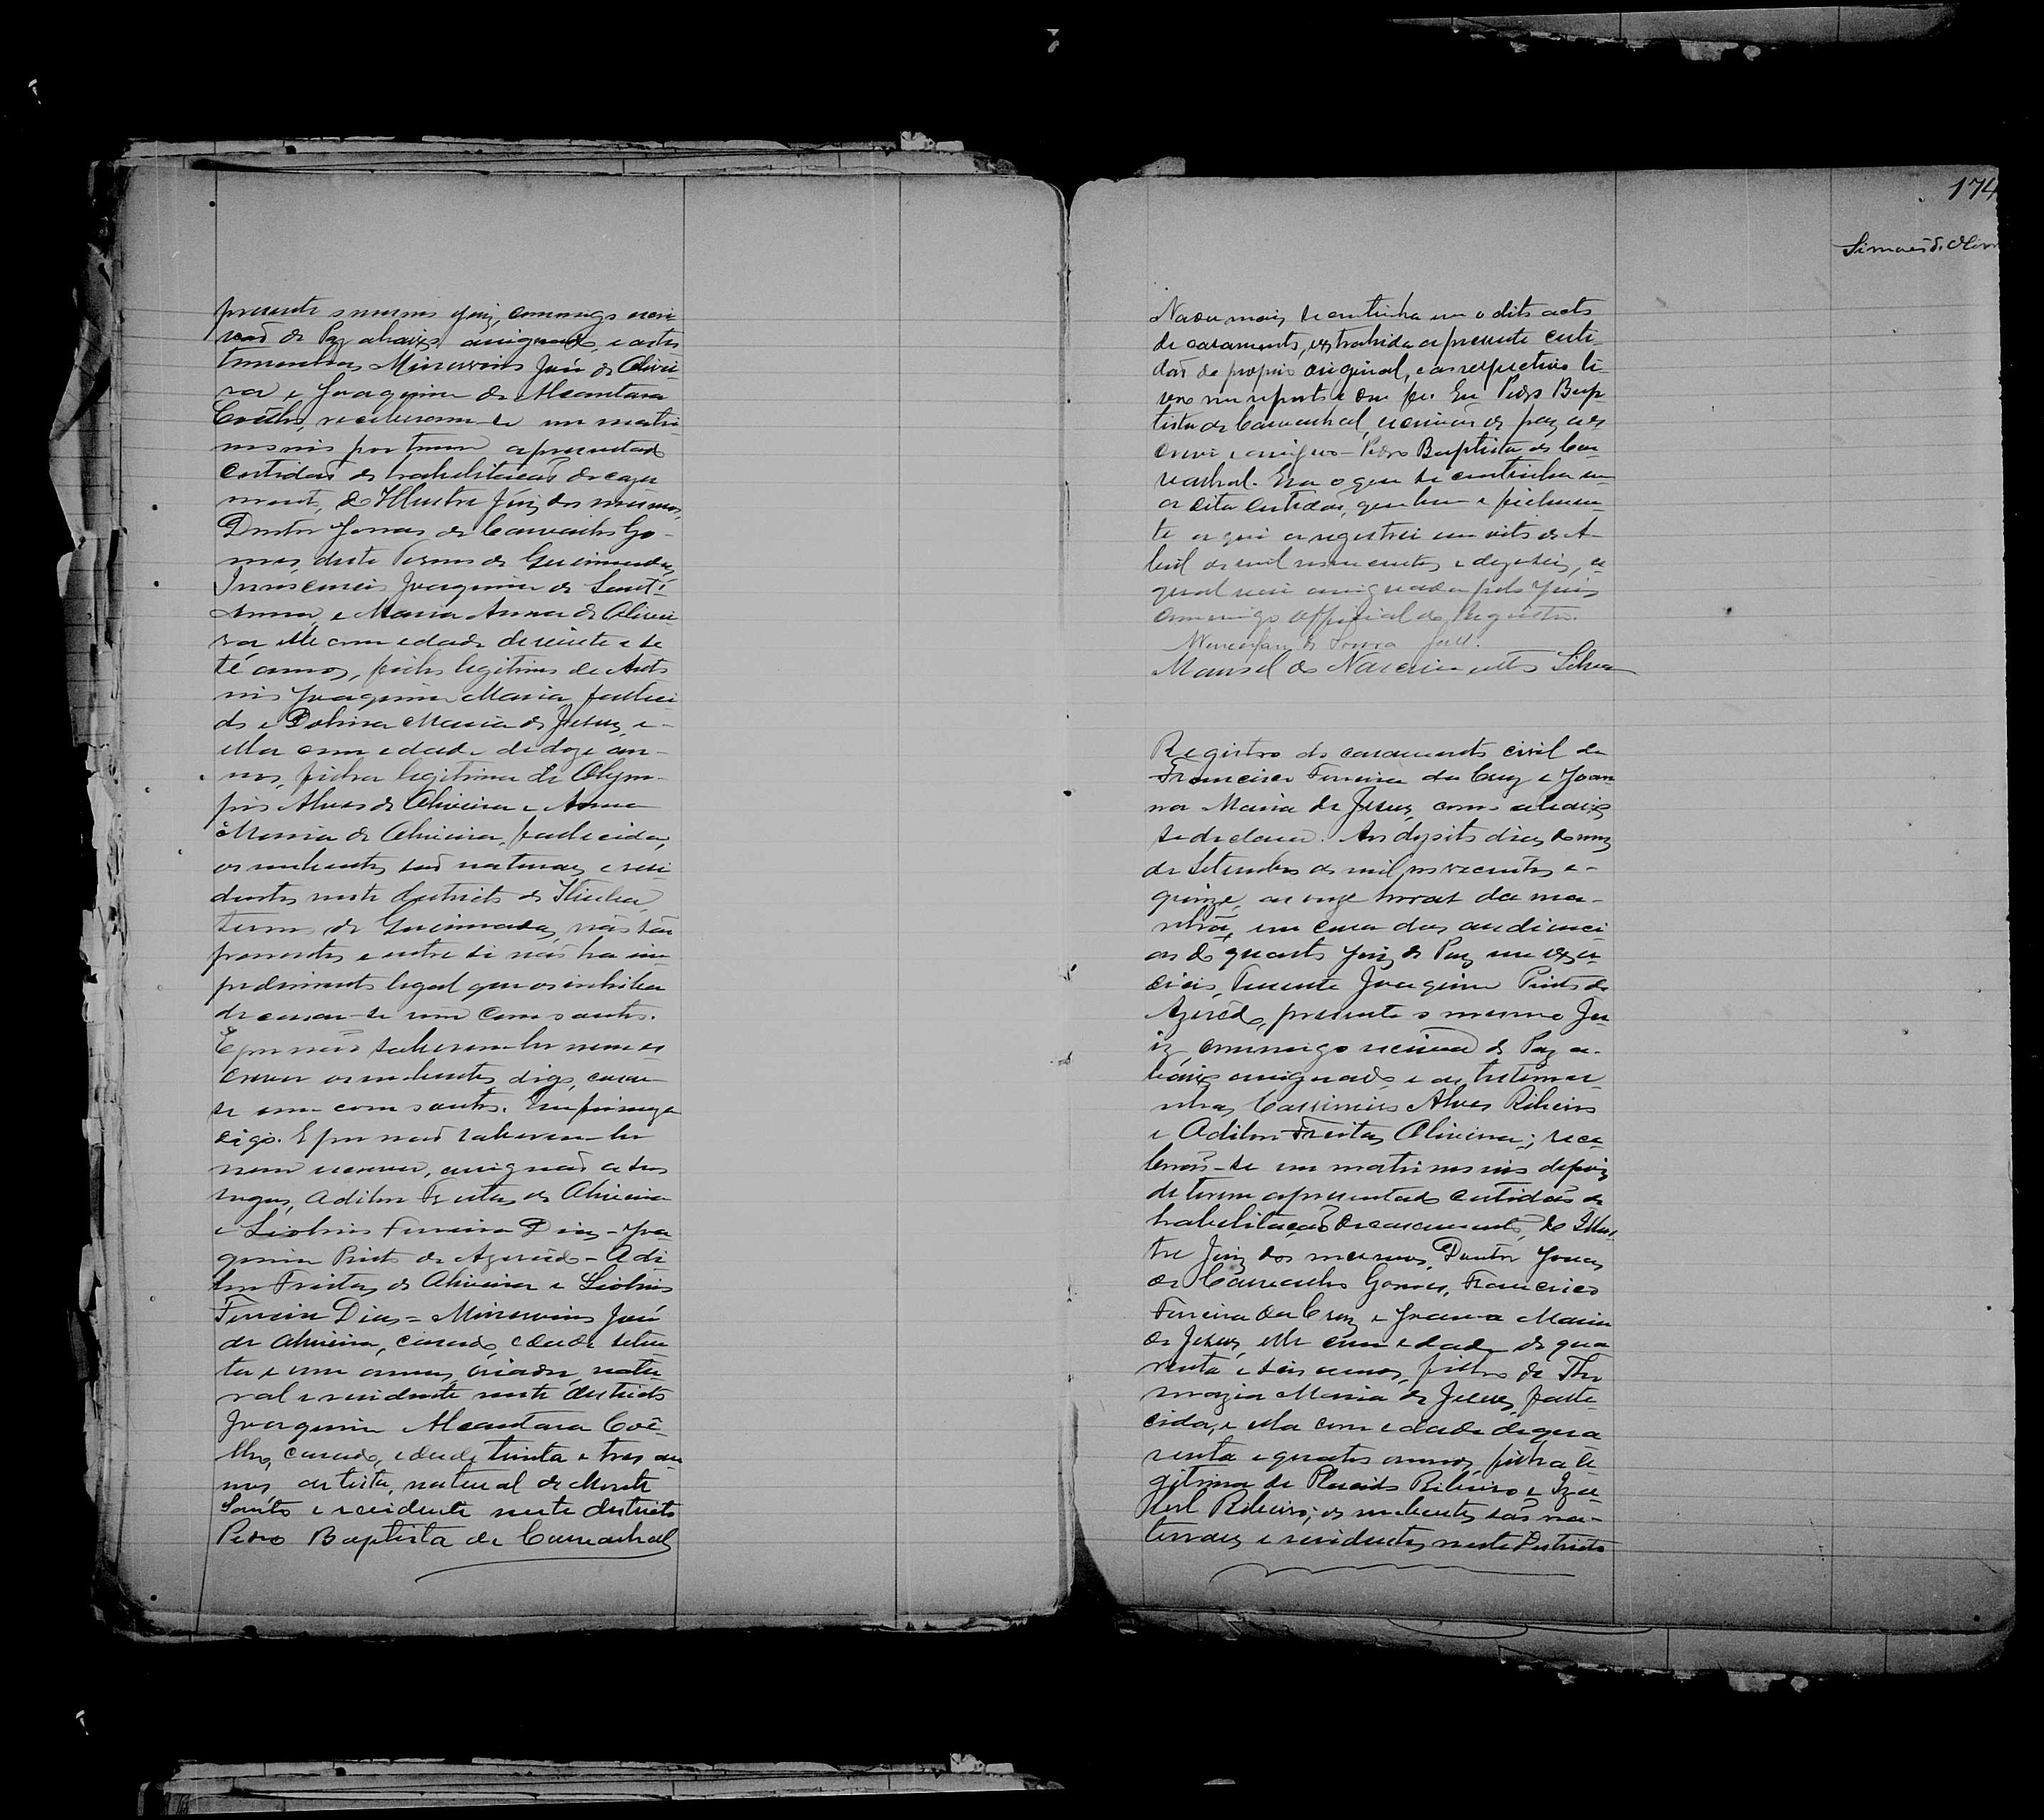 presente o mesmo Juiz, commigo escri-
vaõ de Paz abaixo assignado, e as tes-
temunhas Minervino José de Olivei-
ra e Joaquim de Alcantara
Coêlho, receberam-se em matri-
monio por terem apresentado
certidaõ de habilitacaõ de casa
mento, do Illustre Juiz dos mesmos,
Doutor Jonas de Carvalho Go-
mes, deste Termo de Queimadas,
Innocencio Joaquim de Sant'
Anna, e Maria Anna de Olivei-
ra, elle com edade de vinte e se
te annos, filho legitimo de Anto
nio Joaquim Maria, falleci
do e Maria de Jesus, e-
ella com edade de doze an-
nos, filha legitima de Olym-
pio Alves de Oliveira e Anna
Maria de Oliveira, fallecida,
os nubentes saõ naturaes e resi
dentes neste districto de Itiuba,
termo de Queimadas, não são
parentes e entre si não ha im
pedimento legal que os inhiba
de casar-se um com o outro.
E por naõ saberem ler nem es
crever os nubentes, digo, casar-
se um com o outro. Em firmeza
digo. E por naõ saberem ler
nem escrever, assignaõ a seus
rogos, Adilon Freitas de Oliveira
e Liolino Ferreira Dias - Joa
quim Pinto de Azevêdo - Adi
lon Freitas de Oliveira e Liolino
Ferreira Dias = Minervino José
de Oliveira, casado, edade seten
ta e um annos, criador, natu
ral e residente neste districto
Joaquim Alcantara Coê-
lho, casado, edade trinta e tres an
nos, artista, natural de Monte
Santo e residente neste districto
Pedro Baptista de Carvalhal
174
Simaõ d. Oliv
Nada mais se continha em o dito acto
de casamento, extrahida a presente certi-
daõ do proprio original, e ao respectivo li-
vro me reporto e dou fé. Eu Pedro Bap
tista de Carvalhal, escrivaõ de paz, es
crevi e assigno - Pedro Baptista de Car
valhal. Era o que se continha em
a dita certidaõ, que bem e fielmen-
te aqui a registrei em oito de A-
bril de mil novecentos e dezeseis, a
qual vai assignada pelo Juiz
commigo official do Registro.
de Souza
Manoel do Nascimento Silva
Registro do casamento civil de
Francisco Ferreira da Cruz e Joan
na Maria de Jesus, como abaixo
se declara. Aos dezoito dias do mez
de Setembro de mil novecentos e-
quinze, as onze horas da ma-
nhã, em casa das audienci
as do quarto Juiz de Paz em exer
cicio, Tenente Joaquim Pinto de
Azevêdo, presente o mesmo Ju
iz, commigo escrivaõ de Paz a-
baixo assignado e as testemu
nhas Cassimiro Alves Ribeiro
e Adilon Freitas Oliveira; rece
beraõ-se em matrimonio depois
de terem apresentado certidaõ de
habilitaçaõ de casamento, do Illus
tre Juiz dos mesmos, Doutor Jonas
de Carvalho Gomes, Francisco
Ferreira da Cruz e Joanna Maria
de Jesus, elle com edade de qua
renta e seis annos, filho de Tho
mazia Maria de Jesus, falle
cida, e ella com edade de qua
renta e quatro annos, filha le
gitima de Placido Ribeiro e Iza
bel Ribeiro; os nubentes saõ na-
turaes e residentes neste Districto